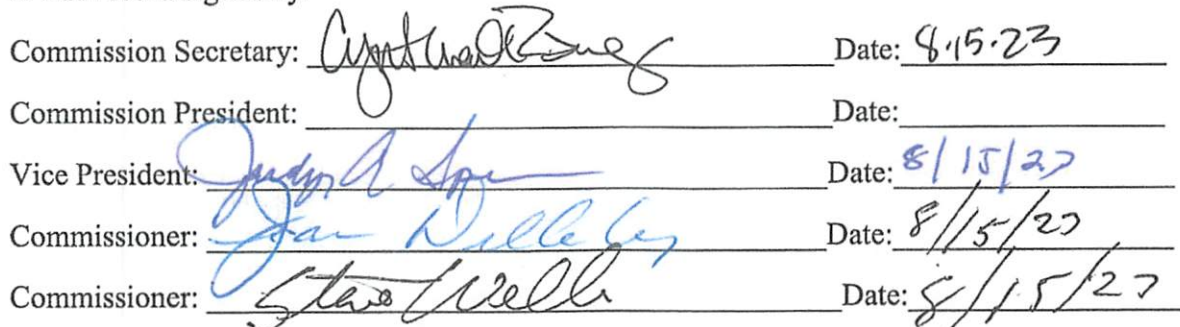 Commission Secretary: Date: 8.15.23
Commission President: Date:
Vice President: Judy A Date: 8/15/23
Commissioner: Date: 8/15/23
Commissioner: Steve Wells Date: 8/15/23